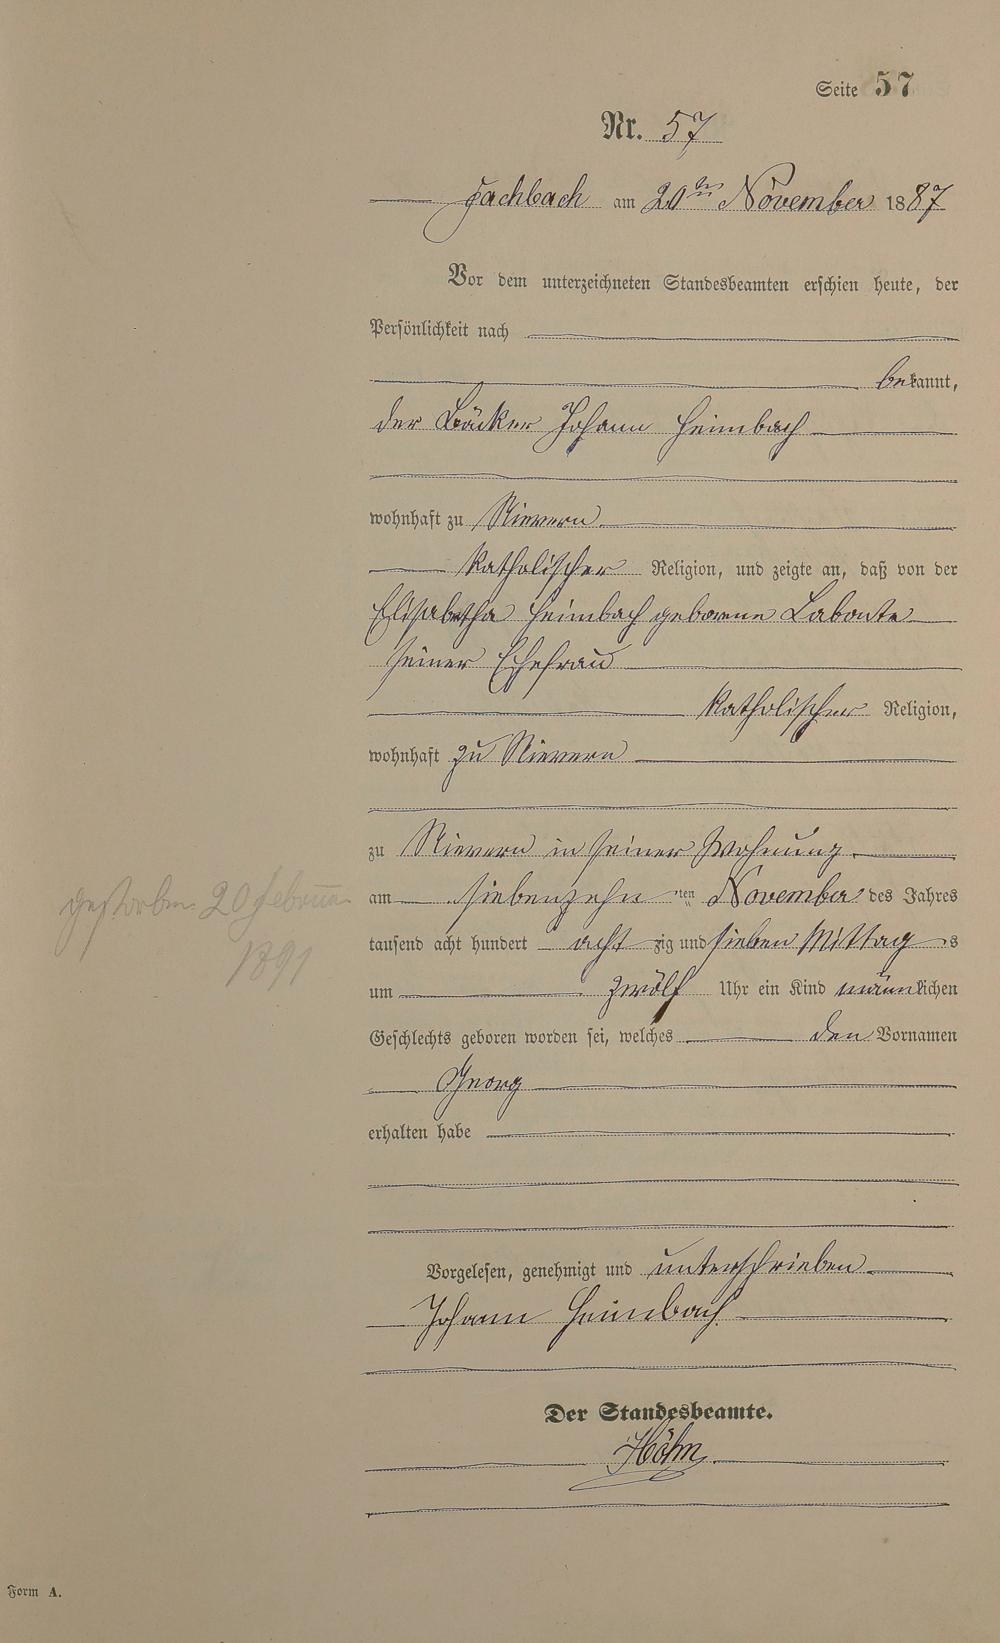 Seite 57
Nr. 57
Fachbach am 20ten November 1887
Vor dem unterzeichneten Standesbeamten erschien heute, der
Persönlichkeit nach
bekannt,
der Bäcker Johann Heimbach
wohnhaft zu Nievern
katholischer Religion, und zeigte an, daß von der
Elisabetha Heimbach geborene Labonte
seiner Ehefrau
katholischer Religion,
wohnhaft zu Nievern
zu Nievern in seiner Wohnung
am siebenzehn ten November des Jahres
tausend acht hundert acht zig und sieben Mittag s
um zwölf Uhr ein Kind männlichen
Geschlechts geboren worden sei, welches den Vornamen
Georg
erhalten habe
gestorben 20 Februar
1891
Vorgelesen, genehmigt und unterschrieben
Johann Heimbach
Der Standesbeamte.
Höhn
Form A.